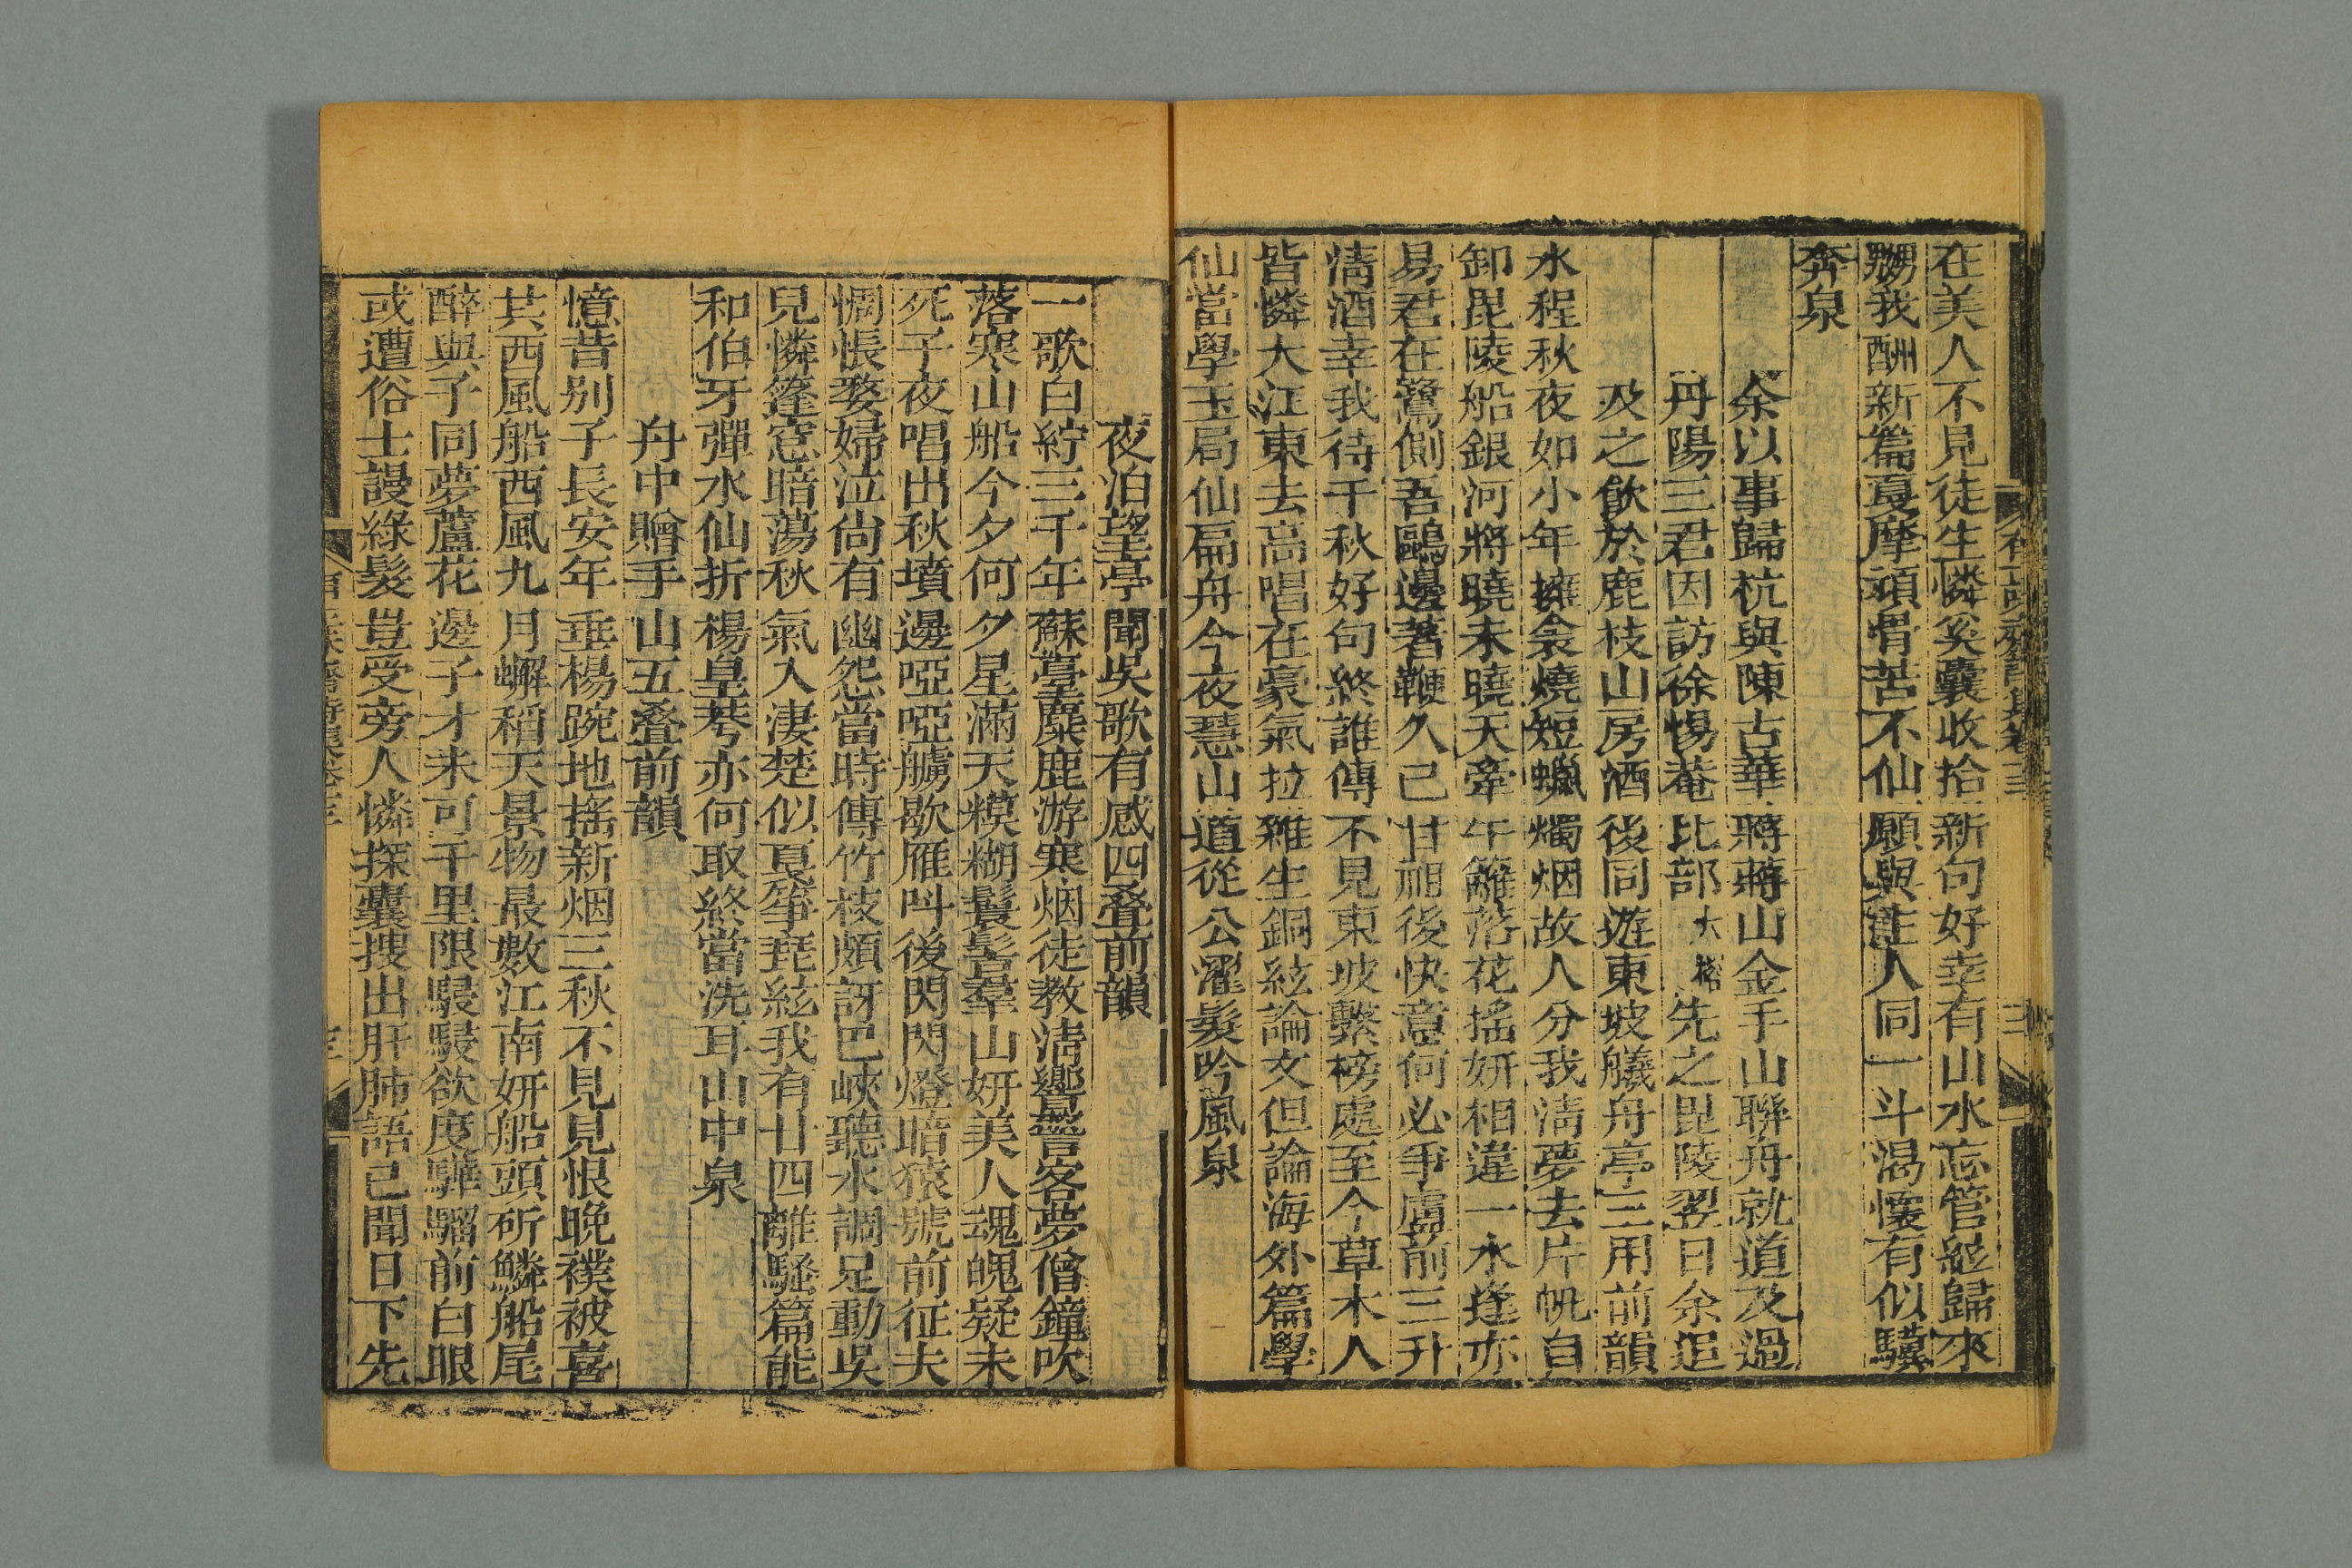 在美人不見徒生憐奚囊收拾新句好幸有山水忘管絃歸來
嬲我酬新篇戛摩頑骨苦不仙願與莊人同一斗渴懷有似驥
奔泉
余以事歸杭與陳古華蔣蔣山金手山聯舟就道及過
丹陽三君因訪徐惕菴比部大榕先之毘陵翌日余追
及之飲於鹿枝山房酒後同遊東坡艤舟亭三用前韻
水程秋夜如小年擁衾燒短蠟燭烟故人分我清夢去片帆自
卸毘陵船銀河將曉未曉天牽牛籬落花搖妍相違一水逢亦
易君在鷺側吾鷗邊著鞭久已甘祖後快意何必爭盧前三升
清酒幸我待千秋好句終誰傳不見東坡繫榜處至今草木人
皆憐大江東去高唱在豪氣拉雜生銅絃論文但論海外篇學
仙當學玉局仙扁舟今夜慧山道從公濯髮吟風泉
夜泊望亭聞吳歌有感四叠前韻
一歌白紵三千年蘇臺麋鹿游寒烟徒教清響警客夢僧鐘吹
落寒山船今夕何夕星滿天糢糊鬟髻羣山妍美人魂魄疑未
死子夜唱出秋墳邊啞啞艣歇雁呌後閃閃燈暗猿號前征夫
惆悵嫠婦泣尙有幽怨當時傳竹枝頗訝巴峽聽水調足動吳
兒憐篷窓暗蕩秋氣入淒楚似戛箏琵絃我有廿四離騷篇能
和伯牙彈水仙折楊皇荂亦何取終當洗耳山中泉
舟中贈手山五叠前韻
憶昔別子長安年垂楊踠地搖新烟三秋不見見恨晚襆被喜
其西風船西風九月蠏稻天景物最數江南妍船頭斫鱗船尾
醉與子同夢蘆花邊子才未可千里限駸駸欲度驊騮前白眼
或遭俗士謾綠髮豈受旁人憐探囊搜出肝肺語已聞日下先